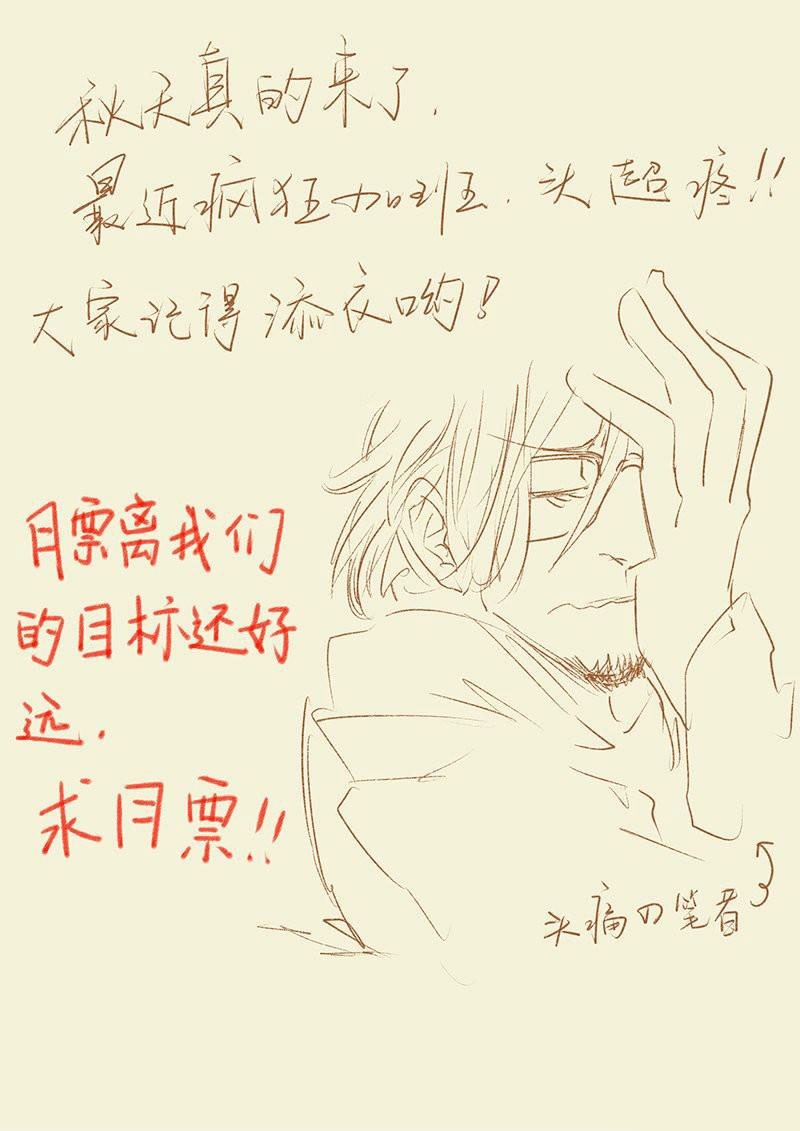 秋天真的来了.
最近疯狂加班.头超疼!!
大家记得添衣哟!
月票离我们
的目标还好
远.
求月票!!
头痛の笔者